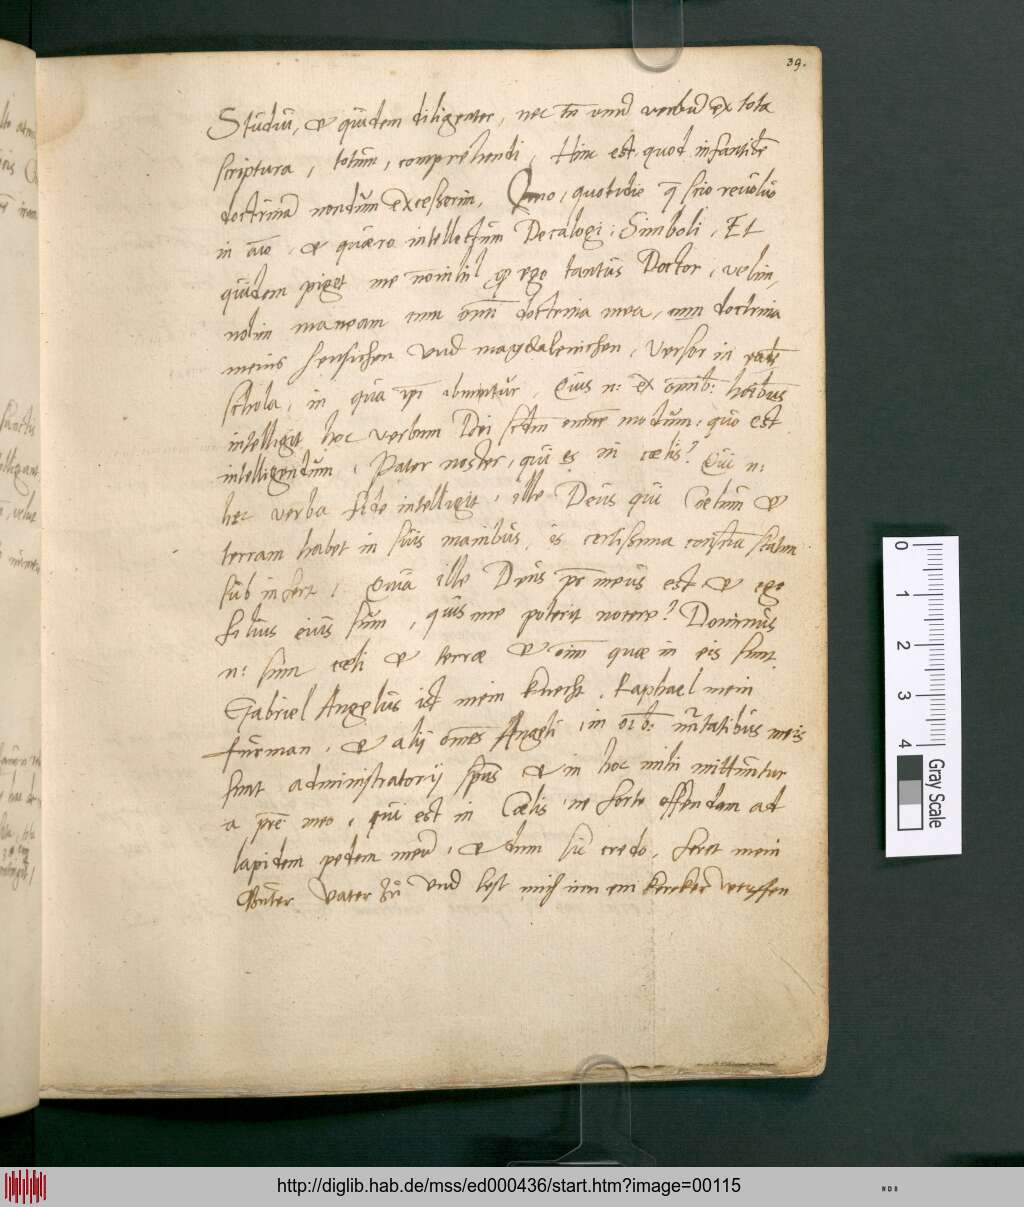 39.
Studui, et quidem diligenter, nec tn unu verbu ex tota
scriptura, totum, comprehendi, Hinc est quod infantile
doctrina nondum excesserim, Imo, quotidie q scio revolvo
in aio, et quæro intellectum Decalogi, Simboli, Et
quidem piget me nonnihil qz ego tantus Doctor, velim,
nolim maneam cum omi doctrina mea, cum doctrina
meins Hensichen und magdalenichen, Versor in eadem
schola, in qua ipi abuntur, Quis n: ex omnib: hoibus
intelligit hoc verbum Dei scdm omne modum, quo est
intelligendum, Pater noster, qui es in cœlis? Qui n:
hec verba fide intelligit, ille Deus qui Cœlum et
terram habet in suis manibus, is certissima scalm
sub infert, Quia ille Deus pr meus est et ego
filius eius sum, quis me poterit nocere? Dominus
n: sum cœli et terræ et oim quæ in eis sunt.
Gabriel Angelus ist mein knecht, Raphael mein
furman, et alij omes Angeli in oib: nctatibus meis
sunt administratorij spus et in hoc mihi mittuntur
a pre meo, qui est in Cœlis, ne forte offendam ad
lapidem pedem meu, et dum sic credo, feret mein
Vater zu und lest mich inn ein kercker werffen
http://diglib.hab.de/mss/ed000436/start.htm?image=00115
0
1
2
3
4
Gray Scale